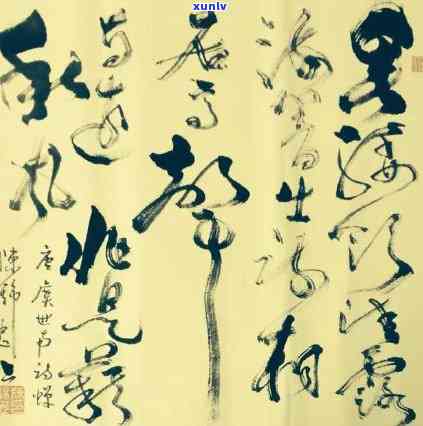 xunlv
垂緌飲清露
流響出疏桐
居高聲
自遠非是藉
秋風
唐虞世南詩蟬
陳